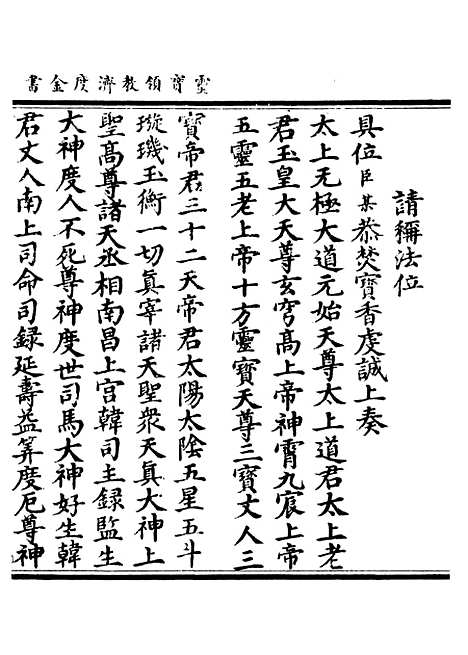 靈寶領教濟度金書
請稱法位
具位臣某恭焚寶香虔誠上奏
太上无極大道元始天尊太上道君太上老
君玉皇大天尊玄穹高上帝神霄九宸上帝
五靈五老上帝十方靈寶天尊三寶丈人三
寶帝君三十二天帝君太陽太陰五星五斗
璇璣玉衡一切真宰諸天聖衆天真大神上
聖高尊諸天丞相南昌上宮韓司主録監生
大神度人不死尊神度世司馬大神好生韓
君丈人南上司命司録延壽益筭度厄尊神